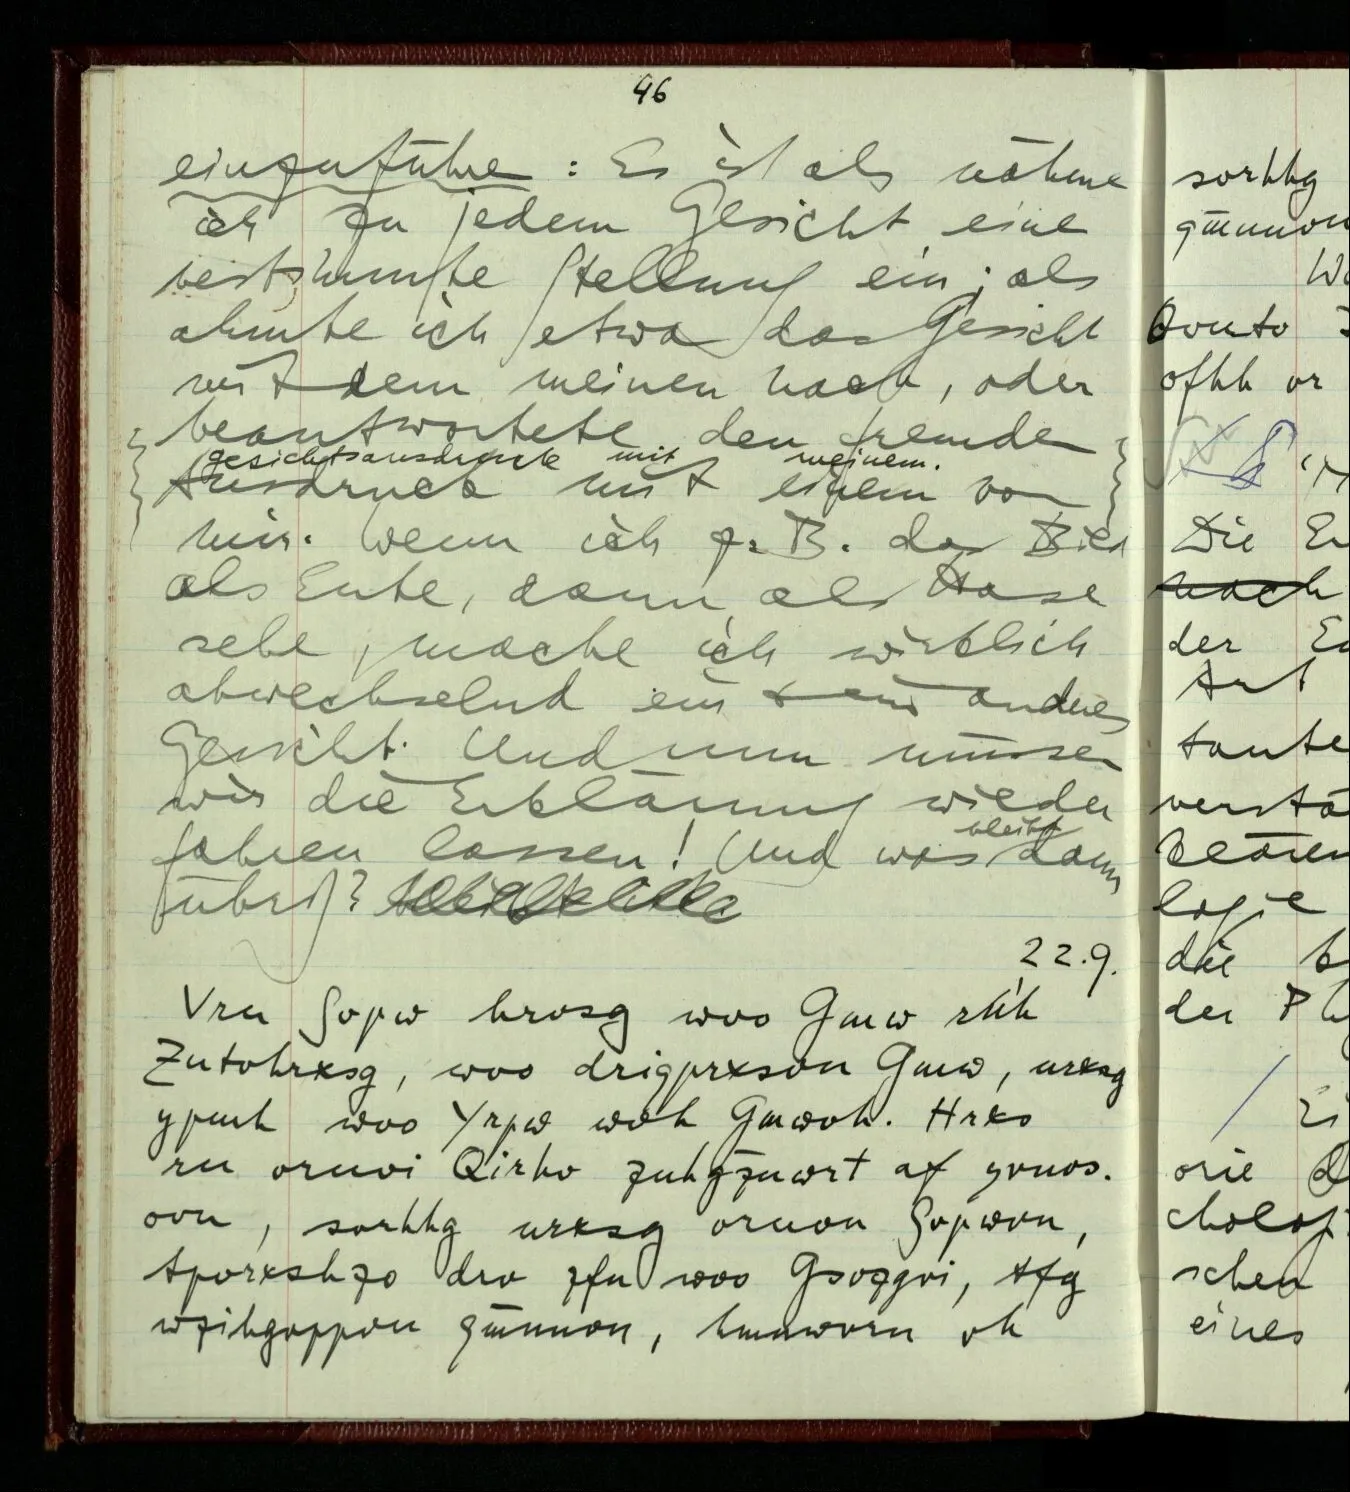 46
einzuführe : Es ist als nähme
ich zu jedem Gesicht eine
bestimmte Stellung ein; als
ahmte ich etwa das Gesicht
mit dem meinen nach, oder
beantwortete den fremde
gesichtsausdruck mit meinem.
Ausdruck mit einem von
mir. Wenn ich z.B. das Bild
als Ente, dann als Hase
sehe, mache ich wirklich
abwechselnd ein anderes
Gesicht. Und nun müssen
wir die Erklärung wieder
bleibt
fahren lassen! Und was dann
übrig?
22.9.
Vru Sopw hrosg woo Gmw rhh
Zutohrxsg, woo drigprxson Gmw, urxsg
ypmh woo Yrpw woh Gmwoh. Hrxo
ru oruoi Qirho zuhgzuwrt af yonos.
oon, sorhhg urxsg oruon Sopwon,
tporxshzo dro zfu woo Gsozgoi, tfg
wzihgoppon gmunon, hmuworn oh
sorhhg
gmunon
Wo
Qonto
ofhh or
Die
nach
der
Art
tante
verstä
klären
logie
die
der
orie
cholog
schen
eines